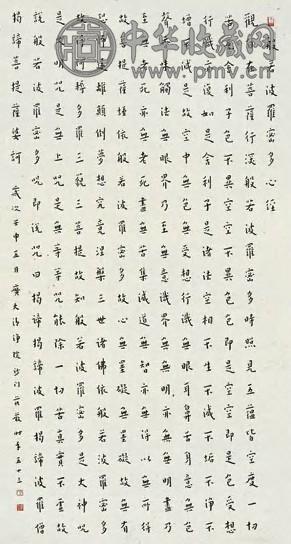 中华收藏网
www.pmv.cn
般若波羅蜜多心經
觀自在菩薩行深般若波羅蜜多時照見五蘊皆空度一切
苦厄舍利子色不異空空不異色色即是空空即是色受想
行識亦復如是舍利子是諸法空相不生不滅不垢不淨不
增不減是故空中無色無受想行識無眼耳鼻舌身意無
色聲香味觸法無眼界乃至無意識界無無明亦無無明盡乃
至無老死亦無老死盡無苦集滅道無智亦無得以無所得
故菩提薩埵依般若波羅蜜多故心無罣礙無罣礙故無有
恐怖遠離顛倒夢想究竟涅槃三世諸佛依般若波羅蜜多
故得阿耨多羅三藐三菩提故知般若波羅蜜多是大神呪
是大明呪是無上呪是無等等呪能除一切苦真實不虛故
說般若波羅蜜多呪即說呪曰揭諦揭諦波羅揭諦波羅僧
揭諦菩提薩婆訶 歲次壬申五月廣大清淨 莊嚴時年五十三